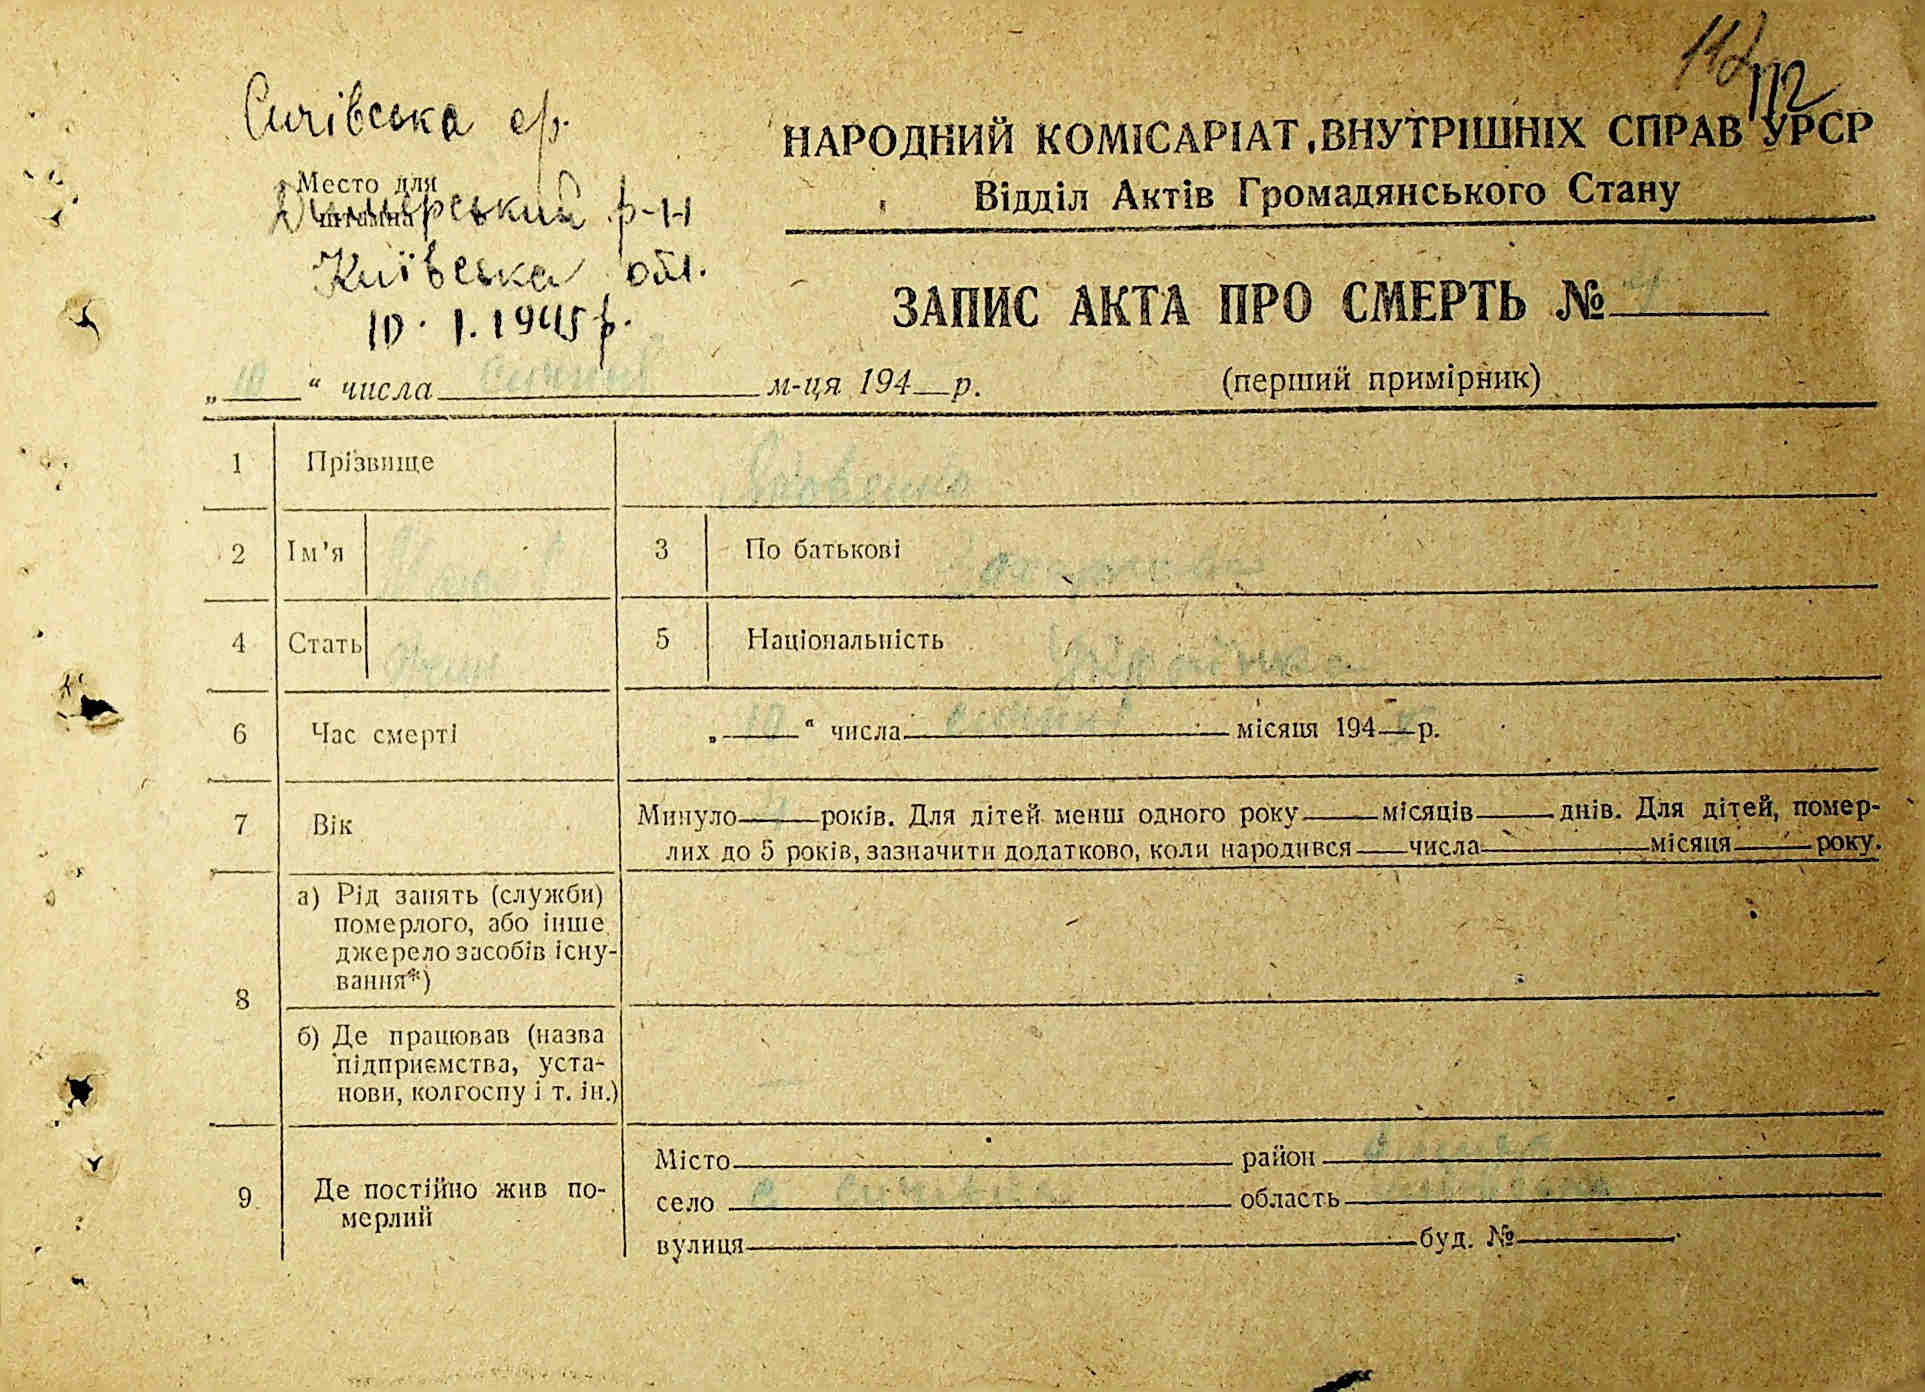 112
112
Сичівська ср.
НАРОДНИЙ КОМІСАРІАТ ВНУТРІШНІХ СПРАВ УРСР
Место для
штампа
Димерський р-н
Відділ Актів Громадянського Стану
Київська обл.
ЗАПИС АКТА ПРО СМЕРТЬ №
10. I. 1945 р.
„10“ числа січня м-ця 194 р.
(перший примірник)
1 Прізвище Яковенко
2 Ім'я 3 По батькові
4 Стать жін 5 Національність Українка
6 Час смерті „10“ числа січня місяця 194 р.
7 Вік Минуло років. Для дітей менш одного року місяців днів. Для дітей, помер-
лих до 5 років, зазначити додатково, коли народився числа місяця року.
8 а) Рід занять (служби)
померлого, або інше
джерело засобів існу-
вання*)
б) Де працював (назва
підприємства, уста-
нови, колгоспу і т. ін.)
9 Де постійно жив по-
мерлий
Місто район
село с. область
вулиця буд. №